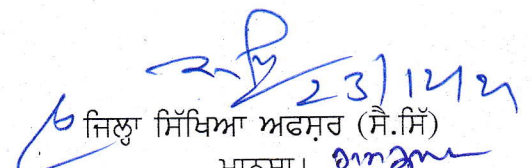 23/12/21
ਜਿਲ੍ਹਾ ਸਿੱਖਿਆ ਅਫਸ਼ਰ (ਸੈ.ਸਿੱ)
ਮਾਨਸਾ।